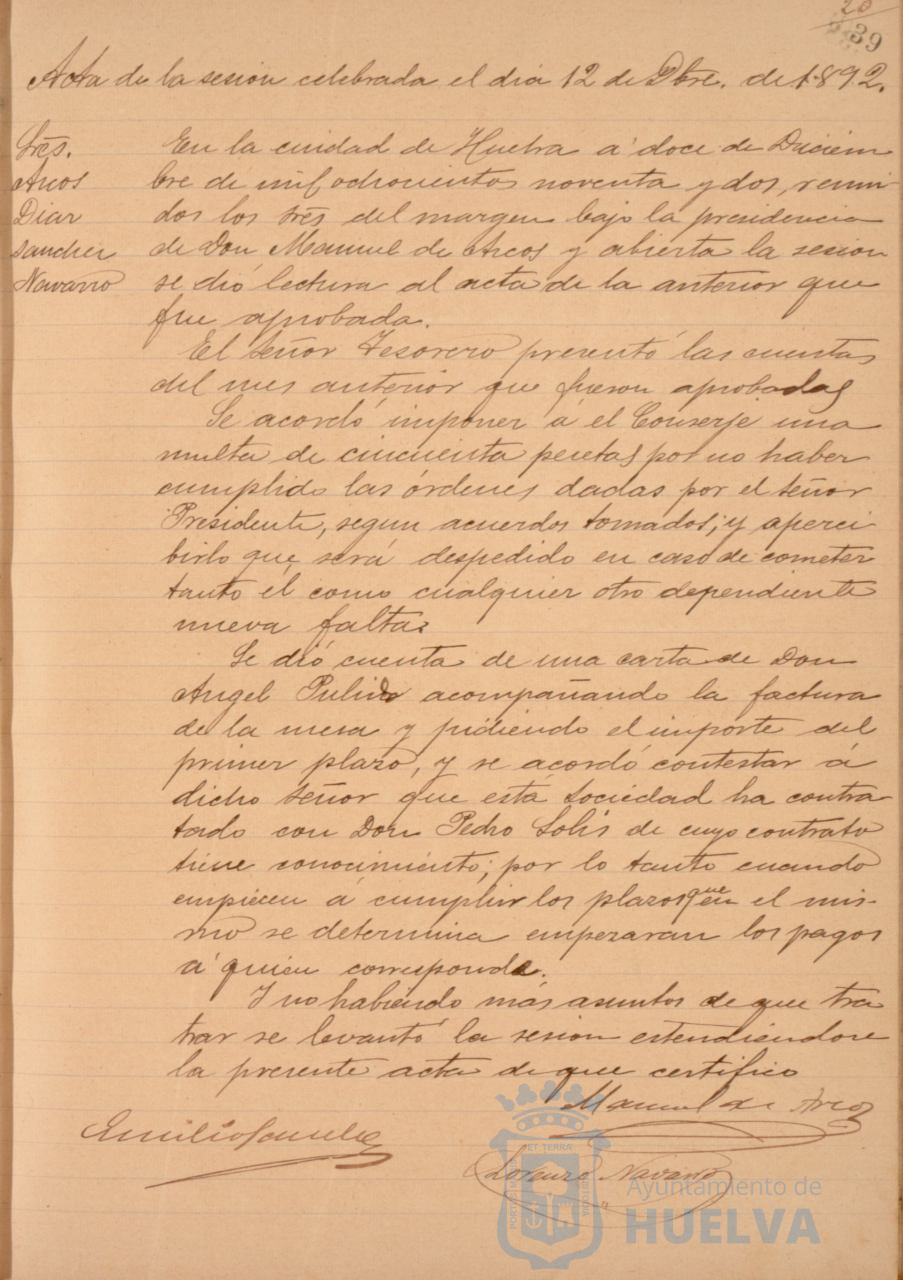 20
39
Acta de la sesion celebrada el dia 12 de Dbre. de 1892.
Srēs.
Arcos
Diaz
Sanchez
Navarro
En la ciudad de Huelva á doce de Diciem
bre de mil ochocientos noventa y dos, reuni
dos los srēs del margen bajo la presidencia
de Don Manuel de Arcos y abierta la sesion
se dió lectura al acta de la anterior que
fue aprobada.
El Señor Tesorero presentó las cuentas
del mes anterior que fueron aprobadas
Se acordó imponer á el Conserje una
multa de cincuenta pesetas por no haber
cumplido las órdenes dadas por el señor
Presidente, segun acuerdos tomados; y aperci
birlo que será despedido en caso de cometer
tanto él como cualquier otro dependiente
nueva falta.
Se dió cuenta de una carta de Don
Angel Pulido acompañando la factura
de la mesa y pidiendo el importe del
primer plazo, y se acordó contestar á
dicho señor que está Sociedad ha contra
tado con Don Pedro Solis de cuyo contrato
tiene conocimiento; por lo tanto cuando
empiecen á cumplir los plazos que en el mis-
mo se determina empezaran los pagos
á quien corresponda.
Y no habiendo más asuntos de que tra
tar se levantó la sesion estendiéndose
la presente acta de que certifico
Manuel de Arcos
Emilio Sanchez
Lorenzo Navarro
ET TERRA
Ayuntamiento de
HUELVA